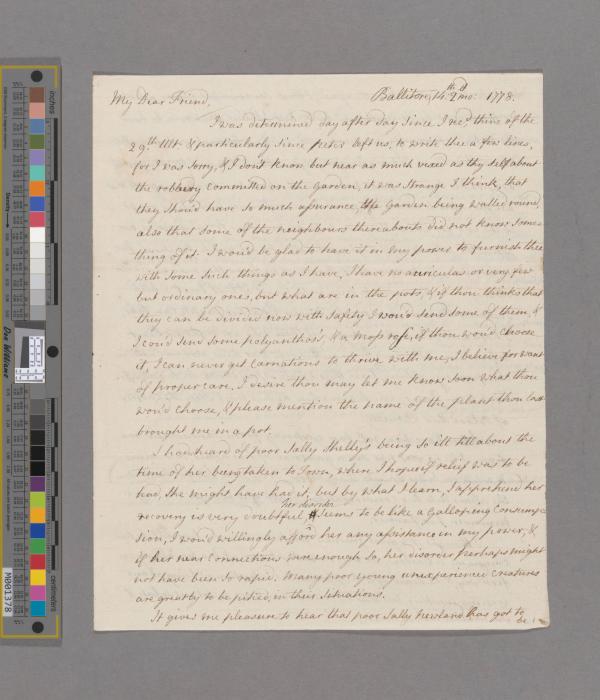 My Dear Friend,
Ballitore, 14th. 2d mo: 1778.
I was determined day after day since I recd. thine of the
29th. Ult. & particularly since Peter left us, to write thee a few lines,
for I was sorry, & I dont know but near as much vexed as thy self about
the robbery committed on the Garden, it was strange I think, that
they should have so much assurance, the Garden being walled round,
also that some of the neighbours thereabouts did not know some-
thing of it. I wou'd be glad to have it in my power to furnish thee
with some such things as I have, I have no auriculas or very few
but ordinary ones, but what are in the pots, & if thou thinks that
they can be divided now with safety I wou'd send some of them, &
I cou'd send some polyanthos's, & a moss rose, if thou wou'd choose
it, I can never get carnations to thrive with me, I believe for want
of proper care. I desire thou may let me know soon what thou
wou'd choose, & please mention the name of the plant thou last
brought me in a pot.
I han't heard of poor Sally Shelly's being so ill till about the
time of her being taken to Town, where I hope if relief was to be
had, she might have had it, but by what I learn, I apprehend her
recovery is very doubtful, her disorder seems to be like a Galloping Consump-
sion, I wou'd willingly afford her any assistance in my power, &
if her near connections were enough so, her disorder perhaps might
not have been so rapid. Many poor young unexperienced creatures
are greatly to be pitied, in their situations.
It gives me pleasure to hear that poor Sally Newland has got to
be
inches
centimetres
Don Williams
M001378